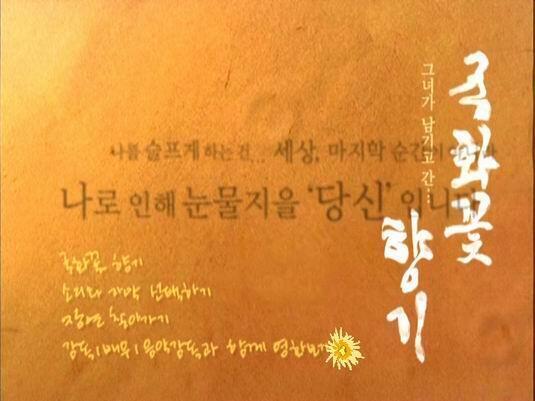 그녀가 남기고 간...
국화꽃
향기
나를 슬프게 하는 건... 세상, 마지막 순간이
나로 인해 눈물지을 '당신' 입니다
국화꽃 향기
소리와 자막 선택하기
장면 찾아가기
감독/배우/음악감독과 함께 영화보기